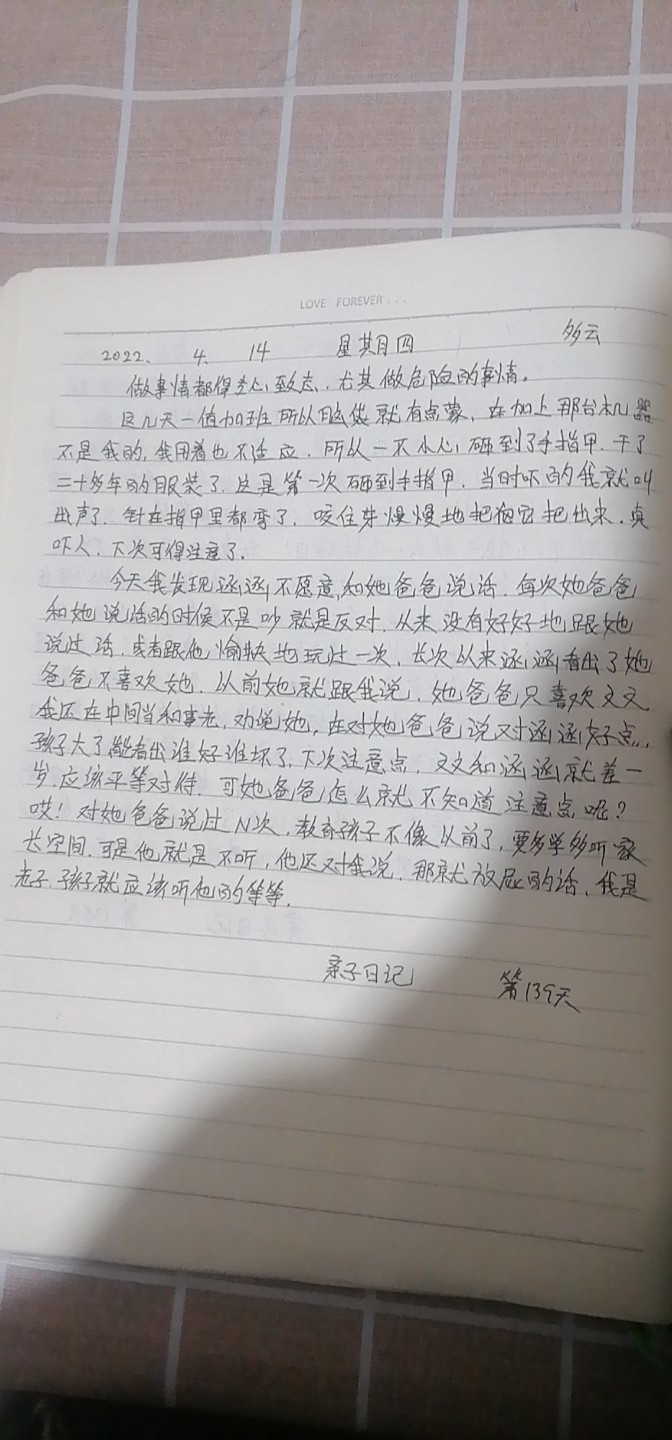 LOVE FOREVER...
2022. 4. 14 星期四 多云
做事情都得专心致志.尤其做危险的事情。
这几天一值加班所以脑袋就有点蒙.在加上那台机器
不是我的,我用着也不适应.所以一不小心砸到了手指甲.干了
二十多年的服装了.这是第一次砸到手指甲.当时吓的我就叫
出声了.针在指甲里都弯了.咬住牙慢慢地把它把出来.真
吓人.下次可得注意了.
今天我发现涵涵不愿意和她爸爸说话.每次她爸爸
和她说话的时候不是吵就是反对.从来没有好好地跟她
说过话.或者跟他愉快地玩过一次.长次以来涵涵看出了她
爸爸不喜欢她.以前她就跟我说.她爸爸只喜欢文文
我还在中间当和事老,劝说她,在对她爸爸说对涵涵好点..
孩子大了能看出谁好谁坏了.下次注意点.文文和涵涵就差一
岁.应该平等对待.可她爸爸怎么就不知道注意点呢?
哎!对她爸爸说过N次,教育孩子不像以前了,要多学多听家
长空间.可是他就是不听,他还对我说.那就放屁的话、我是
老子.孩子就应该听他的等等.
亲子日记 第139天